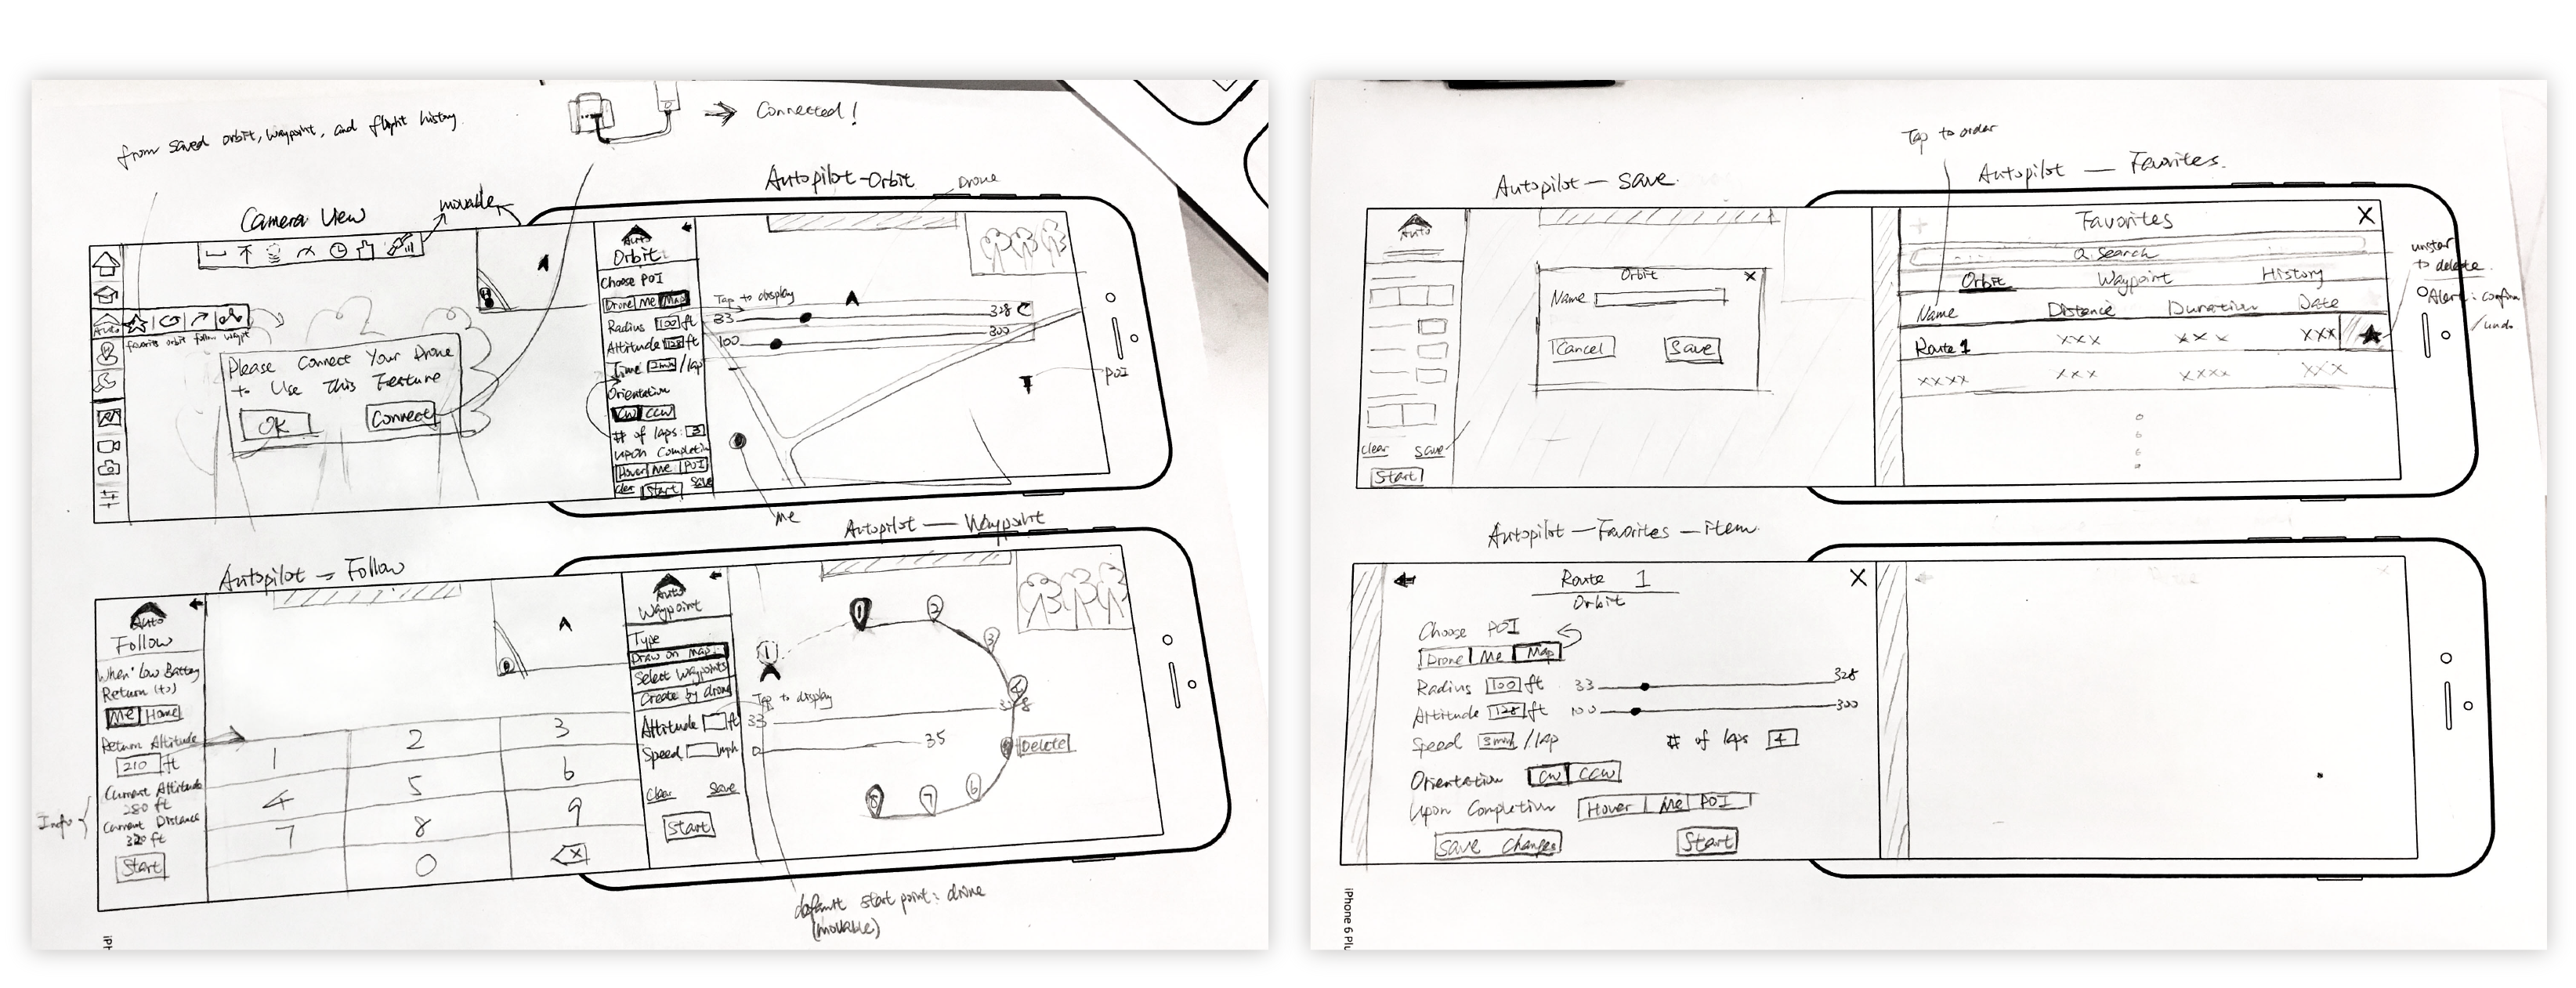 from saved orbit, waypoint, and flight history.
Connected!
Camera View
movable
Auto
favorites orbit follow waypt
Please Connect Your Drone
to Use This Feature
OK
Connect
Autopilot-Orbit
Drone
Auto
Orbit
Choose POI
Drone Me Map
Radius 100 ft
Altitude 128 ft
Time 3min /lap
Orientation
CW CCW
# of laps: 3
Upon Completion
Hover Me POI
Clear Start Save
Tap to display
33 328
100 300
POI
Me
Autopilot - Follow
Auto
Follow
When Low Battery
Return (to)
Me Home
Return Altitude
210 ft
Info
Current Altitude
280 ft
Current Distance
320 ft
Start
1 2 3
4 5 6
7 8 9
0
Autopilot — Waypoint
Auto
Waypoint
Type
Draw on Map
Select Waypoints
Create by drone
Altitude ft
Speed mph
Clear Save
Start
Tap to display
33 328
0 35
1
1
2
3
4
Delete
6
7
8
default start point: drone
(movable)
Autopilot — Save.
Auto
Clear Save
Start
Orbit X
Name
Cancel Save
Tap to order
Autopilot — Favorites.
Favorites X
Search
Orbit Waypoint History
Name Distance Duration Date
Route 1 xxx xxx xxx
xxxx xxx xxxx xxx
unstar
to delete.
Alert: confirm
/undo
Autopilot — Favorites — item.
Route 1 X
Orbit
Choose POI
Drone Me Map
Radius 100 ft 33 328
Altitude 128 ft 100 300
Speed 3min /lap # of laps 4
Orientation CW CCW
Upon Completion Hover Me POI
Save Changes Start
iPh
iPhone 6 Plu